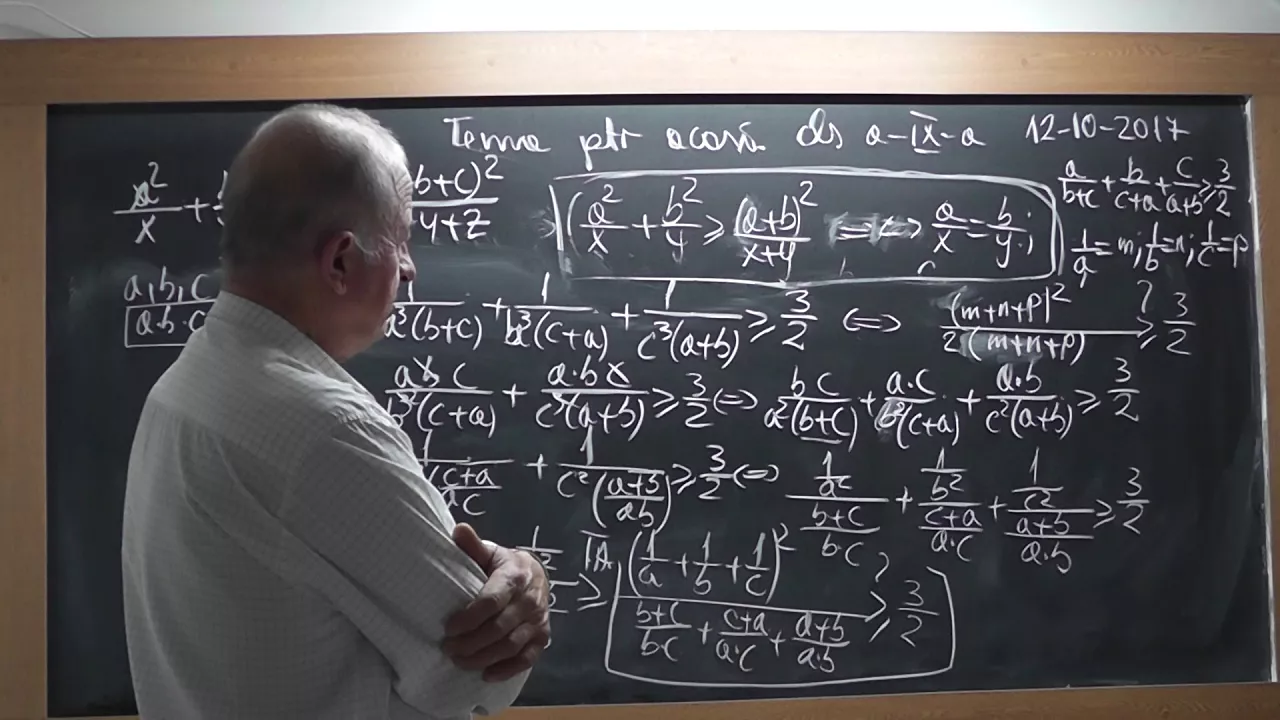 Tema ptr acasă ds a-IX-a 12-10-2017
a²/x + (b+c)²/y+z
(a²/x + b²/y ≥ (a+b)²/x+y ⟺ a/x = b/y;
a/b+c + b/c+a + c/a+b ≥ 3/2
1/a = m; 1/b = n; 1/c = p
a,b,c
a·b·c
1/a³(b+c) + 1/b³(c+a) + 1/c³(a+b) ≥ 3/2 ⟺ (m+n+p)²/2(m+n+p) ≥? 3/2
abc/b³(c+a) + a·b·c/c³(a+b) ≥ 3/2 ⟺ bc/a²(b+c) + a·c/b²(c+a) + a·b/c²(a+b) ≥ 3/2
1/(c+a/ac) + 1/c²(a+b/ab) ≥ 3/2 ⟺ 1/a²/b+c/b·c + 1/b²/c+a/a·c + 1/c²/a+b/a·b ≥ 3/2
≥ (1/a + 1/b + 1/c)²/b+c/b·c + c+a/a·c + a+b/a·b ≥? 3/2